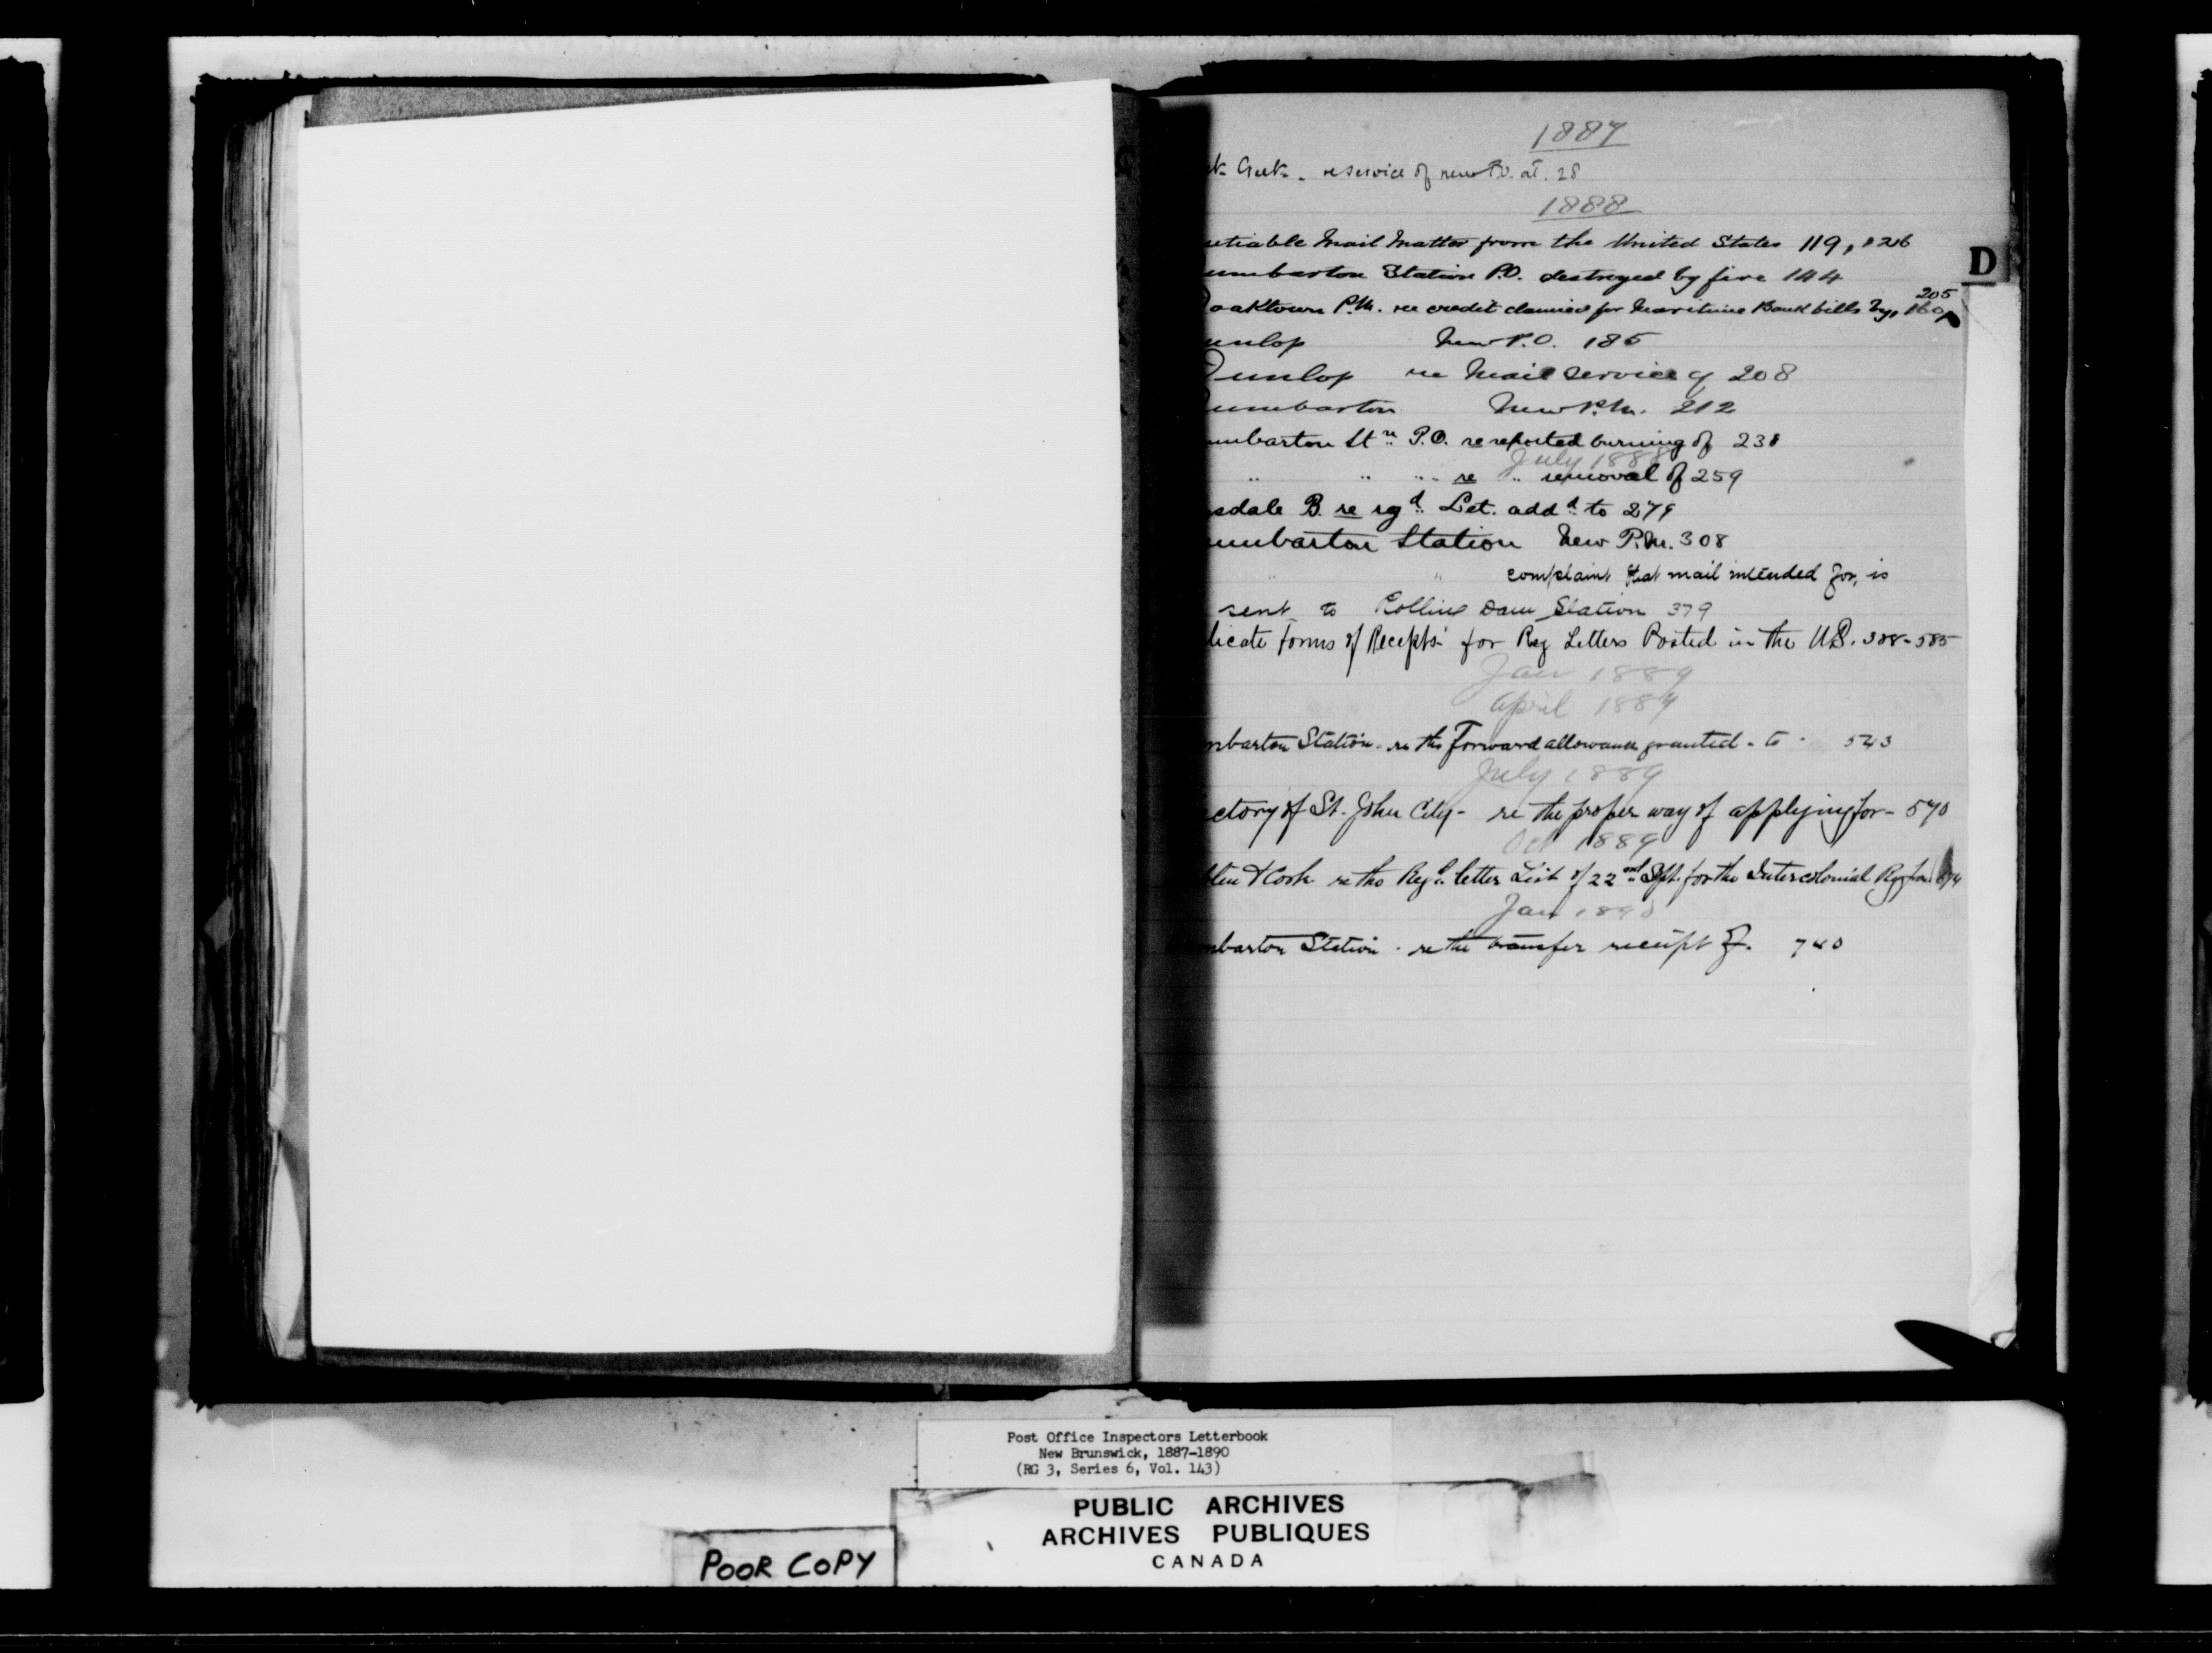 1887
Creek - re service of new P.O. at. 28
1888
utiable Mail Matter from the United States 119, 126
umbarton Station P.O. destroyed by fire 144
205
oaktown P.M. re credit claimed for Maritime Bank bills by, 160
unlop New P.O. 185
Dunlop re Mail service of 208
umbarton New P.M. 212
umbarton Stn P.O. re reported burning of 238
July 1888
" " " re " removal of 259
sdale B. re rgd Let. addd to 279
umbarton Station New P.M. 308
" " complaint that mail intended for, is
sent to Rolling Dam Station 379
licate forms of Receipts for Reg Letters Posted in the U.S. 388-585
Jan 1889
April 1889
mbarton Station - re the Forward allowance granted - to - 543
July 1889
ectory of St. John City - re the proper way of applying for - 570
Oct 1889
& Cork re the Regd letter List of 22nd Sept. for the Intercolonial
Jan 1890
mbarton Station - re the transfer receipt of. 740
D
Post Office Inspectors Letterbook
New Brunswick, 1887-1890
(RG 3, Series 6, Vol. 143)
PUBLIC ARCHIVES
ARCHIVES PUBLIQUES
CANADA
POOR COPY